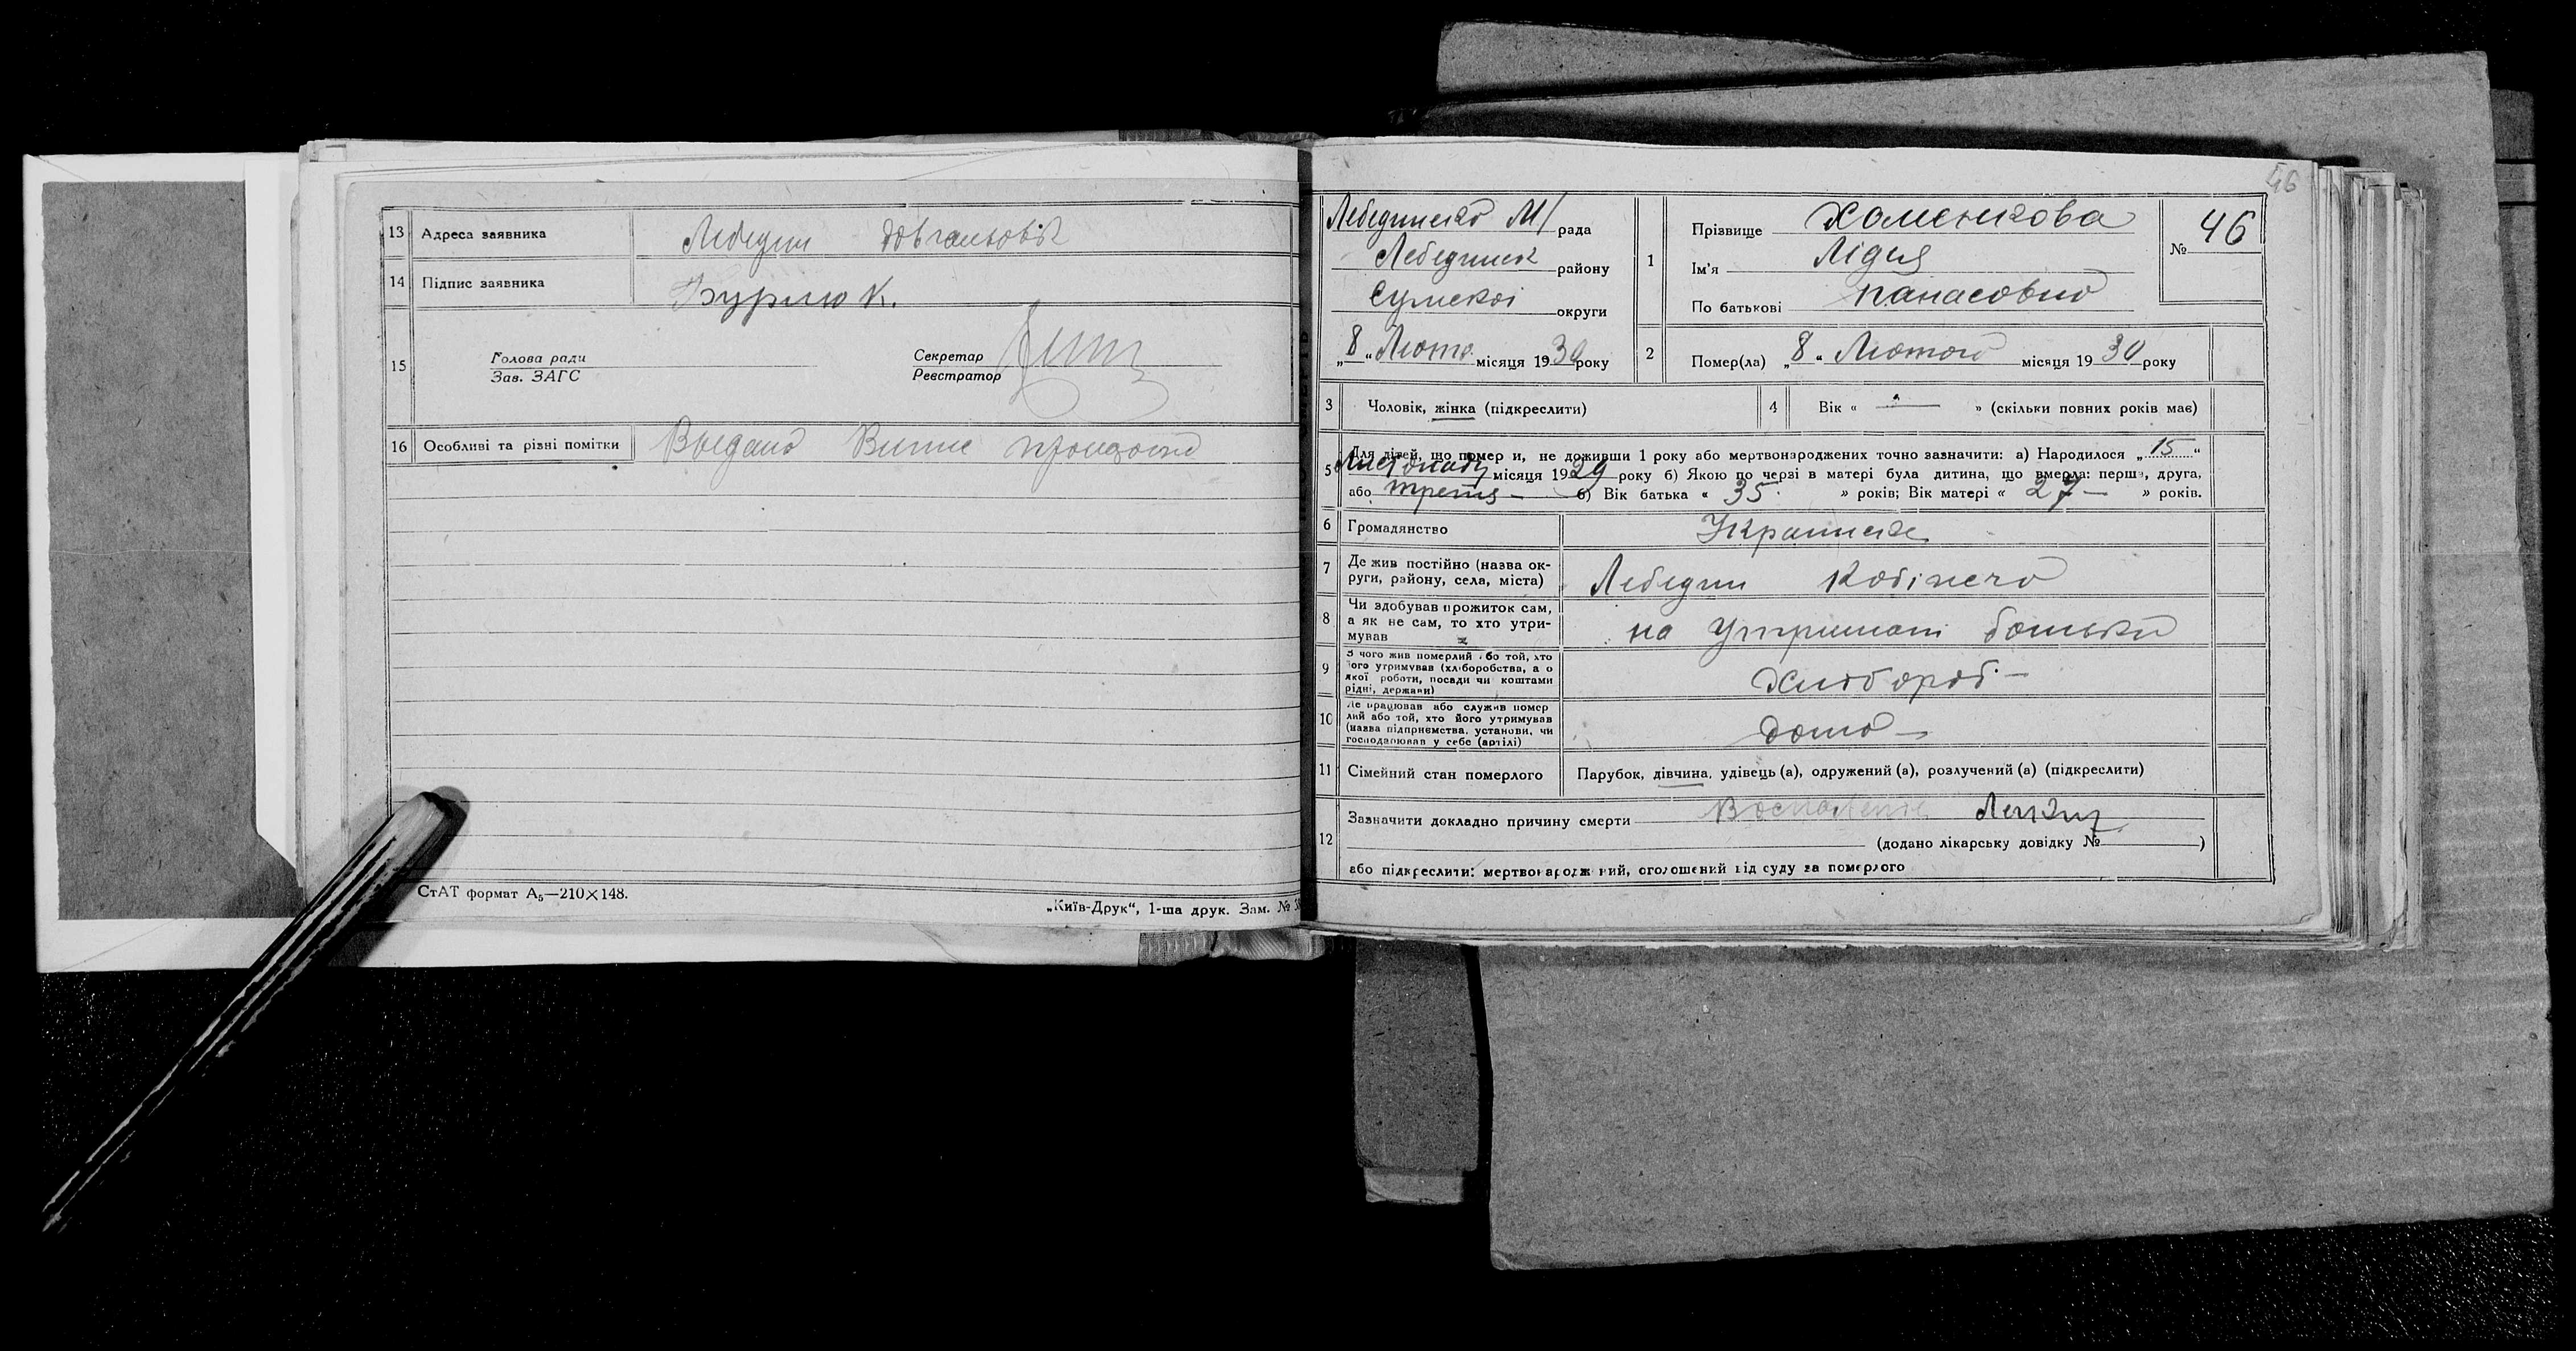 13 Адреса заявника Лебедин
14 Підпис заявника Бурлюк.
15 Голова ради
Зав. ЗАГС
Секретар
Реєстратор
16 Особливі та різні помітки Выдано
СтАТ формат А5—210×148.
„Київ-Друк“, 1-ша друк. Зам. №
46
Лебединсько М/ рада
Лебединск району
Сумскої округи
„8“ Люто місяця 1930 року
1 Прізвище Хоменкова
Ім'я Лідия
По батькові Панасовно
№ 46
2 Помер(ла) „8“ Лютого місяця 1930 року
3 Чоловік, жінка (підкреслити)
4 Вік « — » (скільки повних років має)
5 Для дітей, що померли, не доживши 1 року або мертвонароджених точно зазначити: а) Народилося „15“
Листопаду місяця 1929 року б) Якою по черзі в матері була дитина, що вмерла: перша, друга,
або третя — в) Вік батька « 35 » років; Вік матері « 27 — » років.
6 Громадянство Українське
7 Де жив постійно (назва ок-
руги, району, села, міста) Лебедин
8 Чи здобував прожиток сам,
а як не сам, то хто утри-
мував на утримані батьки
9 З чого жив померлий або той, хто
його утримував (хліборобства, а о
якої роботи, посади чи коштами
рідні, держави) Хлібороб —
10 Де працював або служив помер
лий або той, хто його утримував
(назва підприємства, установи, чи
господарював у себе (артілі) дома —
11 Сімейний стан померлого Парубок, дівчина, удівець (а), одружений (а), розлучений (а) (підкреслити)
12 Зазначити докладно причину смерти Воспаление Легких
(додано лікарську довідку № )
або підкреслити: мертвонароджений, оголошений від суду за померлого